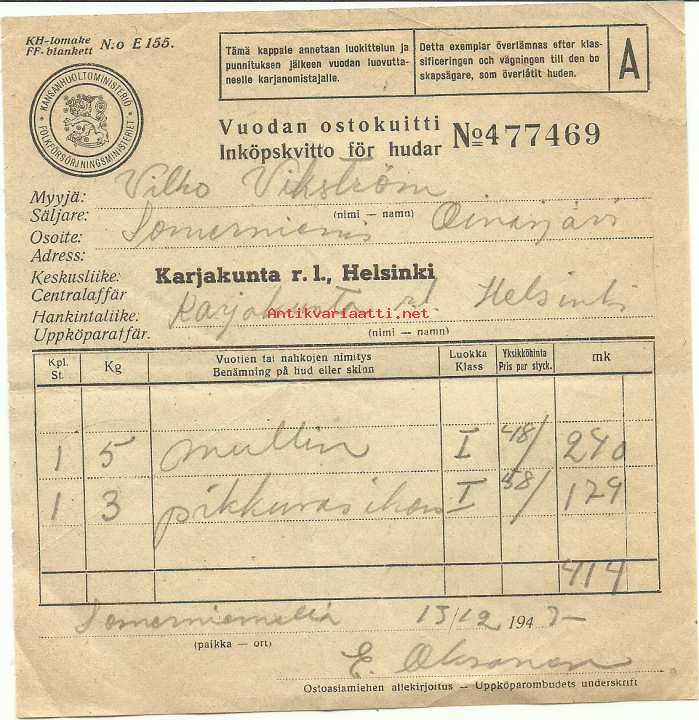 KH-lomake
FF-blankett N:o E 155.
KANSANHUOLTOMINISTERIÖ
FOLKFÖRSÖRJNINGSMINISTERIET
Tämä kappale annetaan luokittelun ja
punnituksen jälkeen vuodan luovutta-
neelle karjanomistajalle.
Detta exemplar överlämnas efter klas-
sificeringen och vägningen till den bo
skapsägare, som överlåtit huden.
A
Vuodan ostokuitti
Inköpskvitto för hudar
No 477469
Myyjä: Vilho Vikström
Säljare: (nimi — namn)
Osoite: Somerniemi Oinasjärvi
Adress:
Keskusliike: Karjakunta r. l., Helsinki
Centralaffär
Hankintaliike: Karjakunta r.l. Helsinki
Uppköparaffär. (nimi — namn)
Antikvariaatti.net
Kpl. Kg Vuotien tai nahkojen nimitys Luokka Yksikköhinta mk
St. Benämning på hud eller skinn Klass Pris per styck.
1 5 mullin I 48/ 240
1 3 pikkuvasikan I 58/ 174
414
Somerniemellä 15/12 194
(paikka — ort)
E. Oksanen
Ostoasiamiehen allekirjoitus — Uppköparombudets underskrift